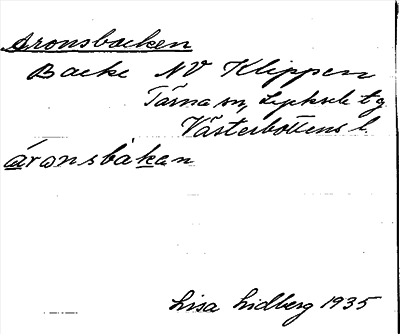 Aronsbacken
Backe NV Klippen
Tärna sn, Lycksele tg
Västerbottens l.
áronsbàkan
Lisa Lidberg 1935